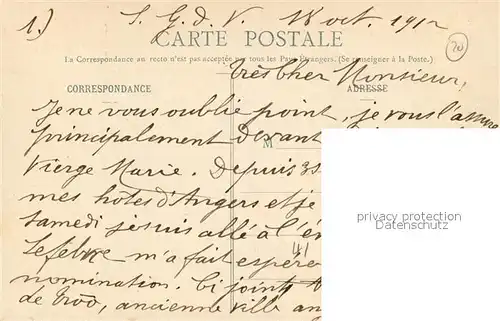 1) S. G. D. V. 18 oct. 1912
CARTE POSTALE
20
La Correspondance au recto n'est pas acceptée par tous les Pays Étrangers. (Se renseigner à la Poste.)
Très Cher Monsieur,
CORRESPONDANCE
ADRESSE
Je ne vous oublie point, je vous l'assure
principalement devant
M
Vierge Marie. Depuis
mes hôtes d'Angers et je
samedi je suis allé à l'
Lefebvre m'a fait espére
41
nomination. Ci joint
de Troo, ancienne ville
privacy protection
Datenschutz